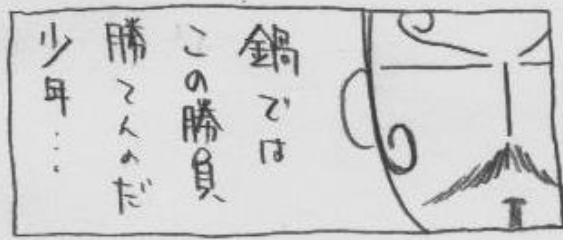 鍋では
この勝負
勝てんのだ
少年…